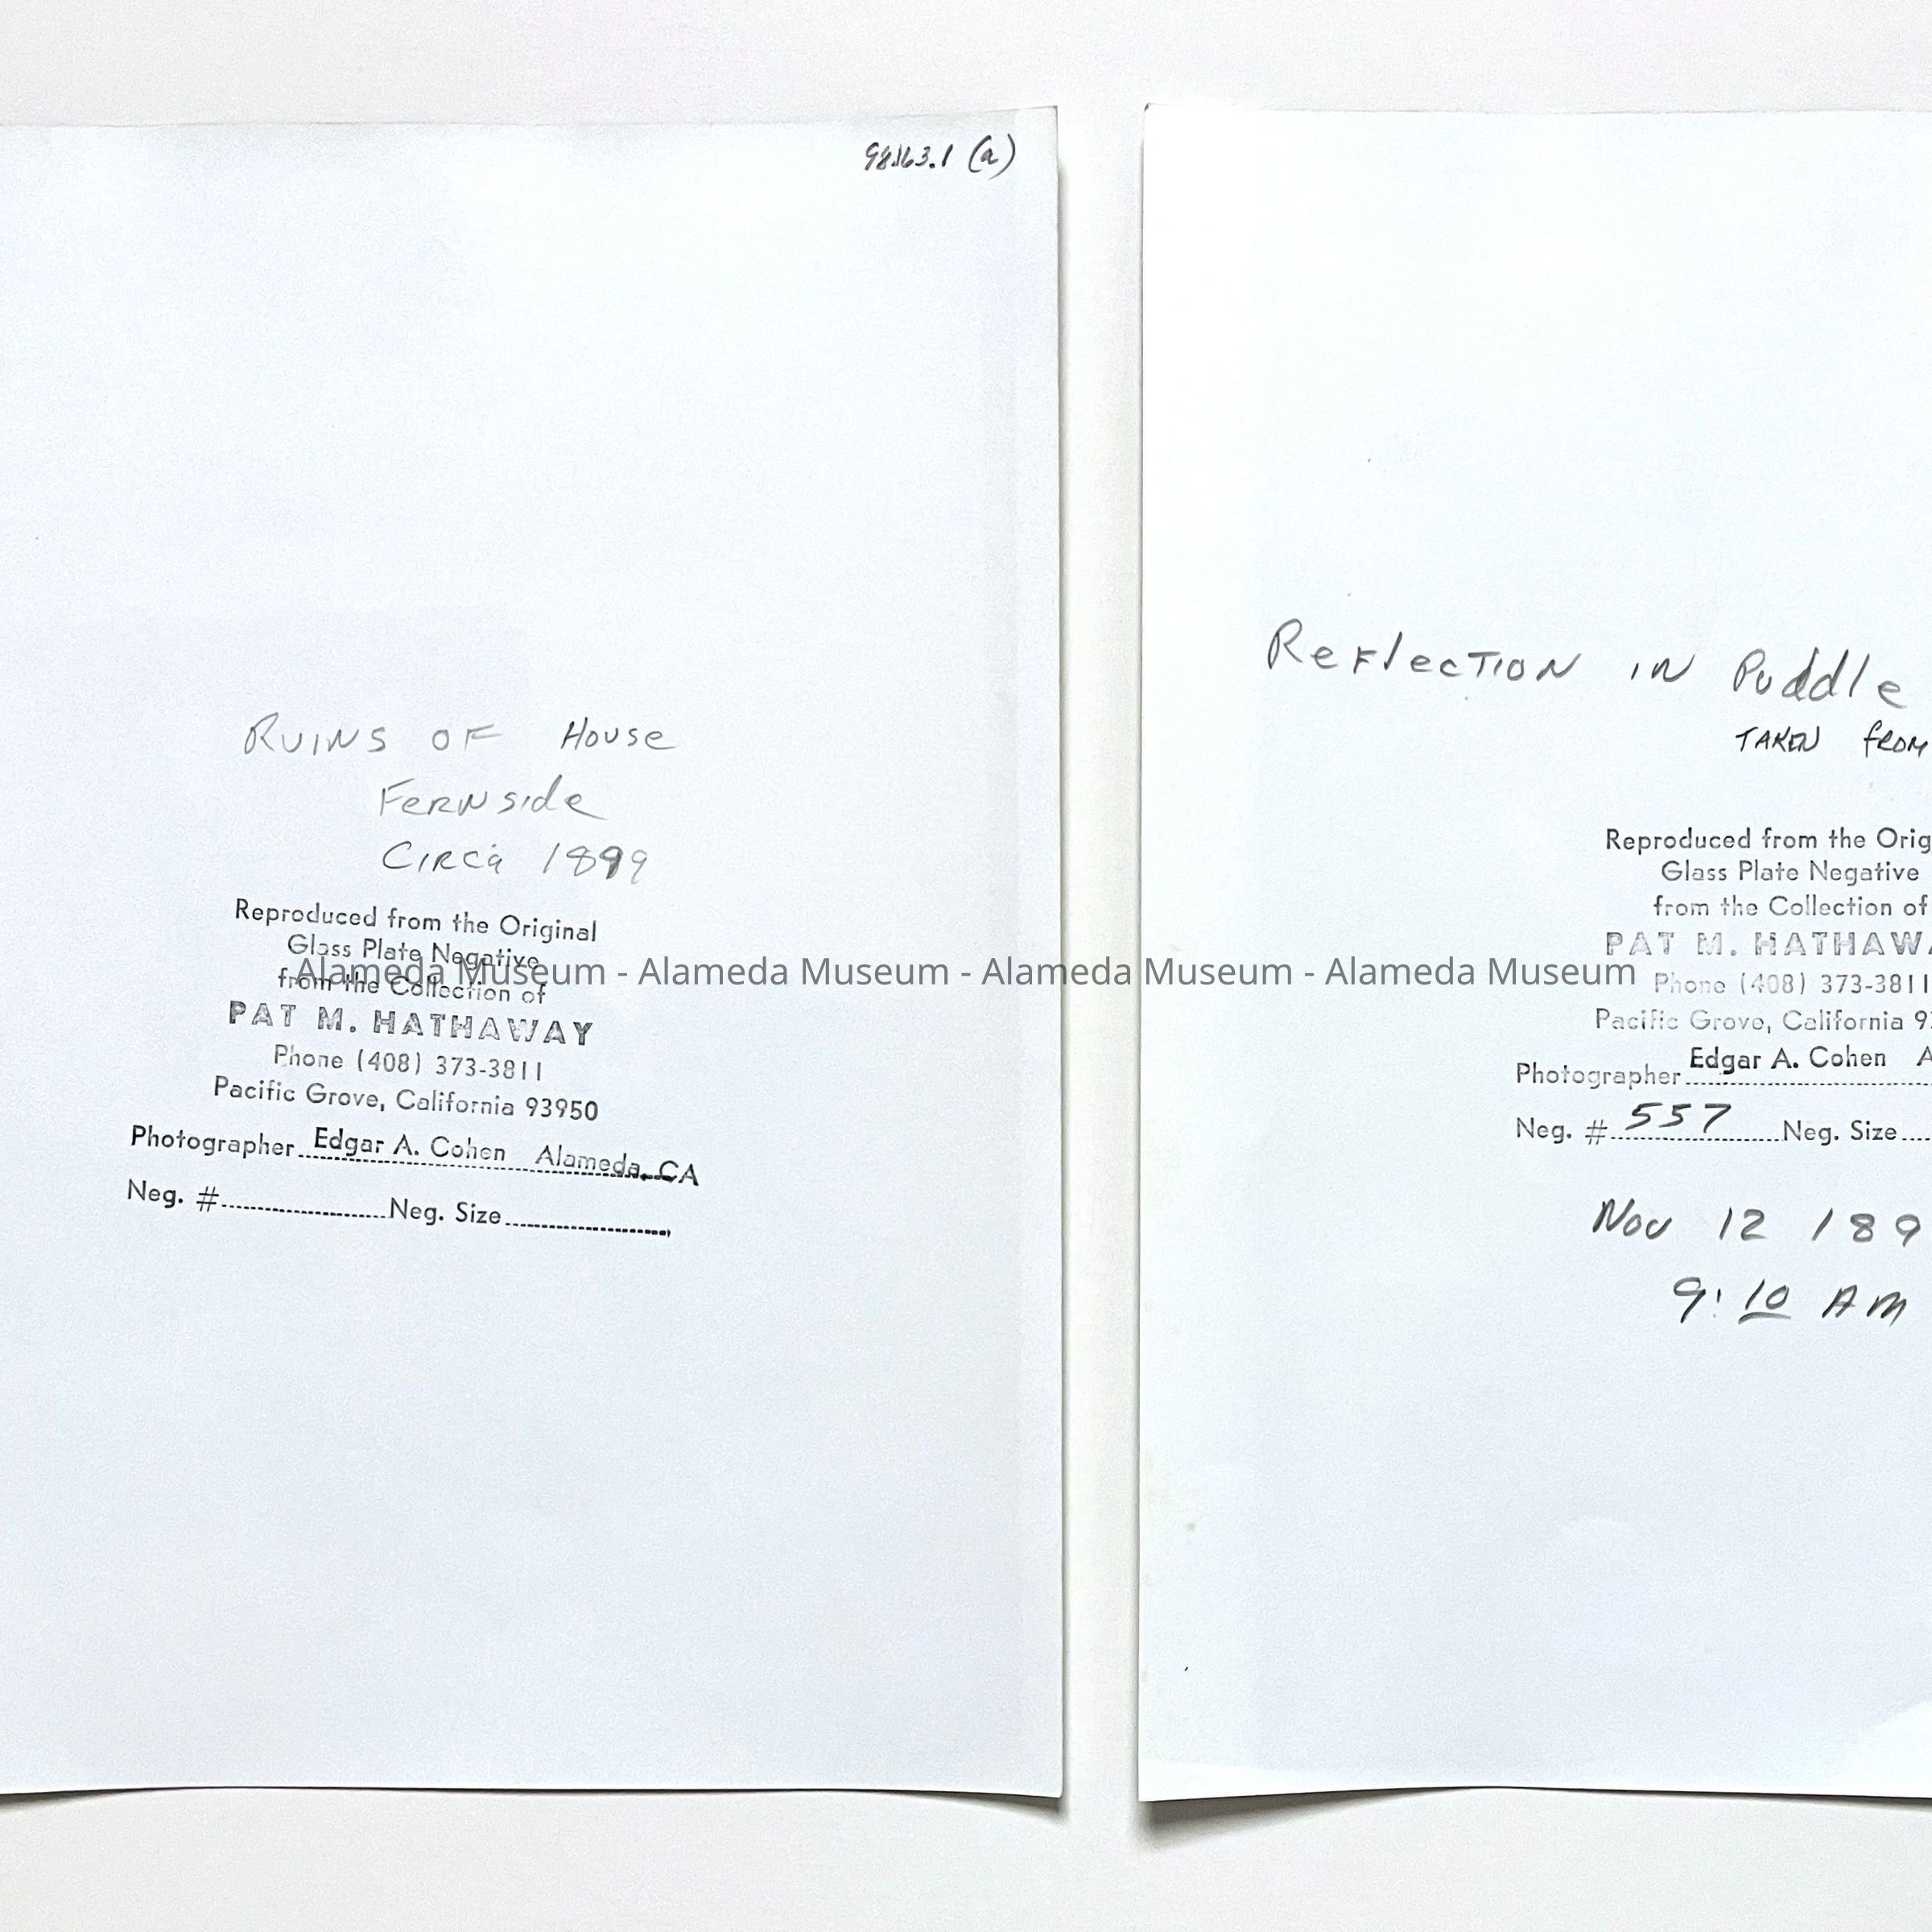 98.163.1 (a)
Ruins of House
Fernside
Circa 1899
Reproduced from the Original
Glass Plate Negative
from the Collection of
PAT M. HATHAWAY
Phone (408) 373-3811
Pacific Grove, California 93950
Photographer Edgar A. Cohen Alameda, CA
Neg. # Neg. Size
Reflection in Puddle
TAKEN from
Reproduced from the Orig
Glass Plate Negative
from the Collection of
PAT M. HATHAWA
Phone (408) 373-3811
Pacific Grove, California 9
Photographer Edgar A. Cohen A
Neg. # 557 Neg. Size
Nov 12 189
9:10 AM
Alameda Museum - Alameda Museum - Alameda Museum - Alameda Museum